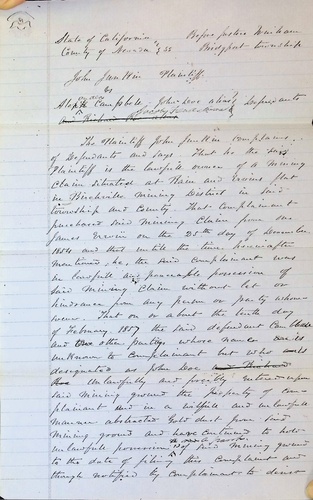 State of California } Before Justice
County of Nevada } ss Bridgport Township
John Junkin Plaintiff
vs
Campbell John Doe alias Defendants
and Richard
The Plaintiff John Junkin complains
of Defendants and says That he the said
Plaintiff is the lawful owner of a Mining
Claim situated at Flat
in Birchville Mining District in said
Township and County. That Complainant
purchased said Mining Claim from one
James Ervin on the 25th day of December
1854 and that until the time hereinafter
mentioned, he, the said complainant was
in lawfull and peaceable possession of
said Mining Claim without let or
hindrance from any person or party whom-
ever. That on or about the tenth day
of February 1857 the said defendant Campbell
and other parties whose names are
unknown to Complainant but who
designated as John Doe
unlawfully and forcibly entered upon
said Mining ground the property of com-
plainant and in a willfull and unlawfull
manner abstracted Gold dust from said
Mining ground and have continued to hold
unlawfull possession of said Mining ground
to the date of filing this complaint and
though notified by complainant to desist